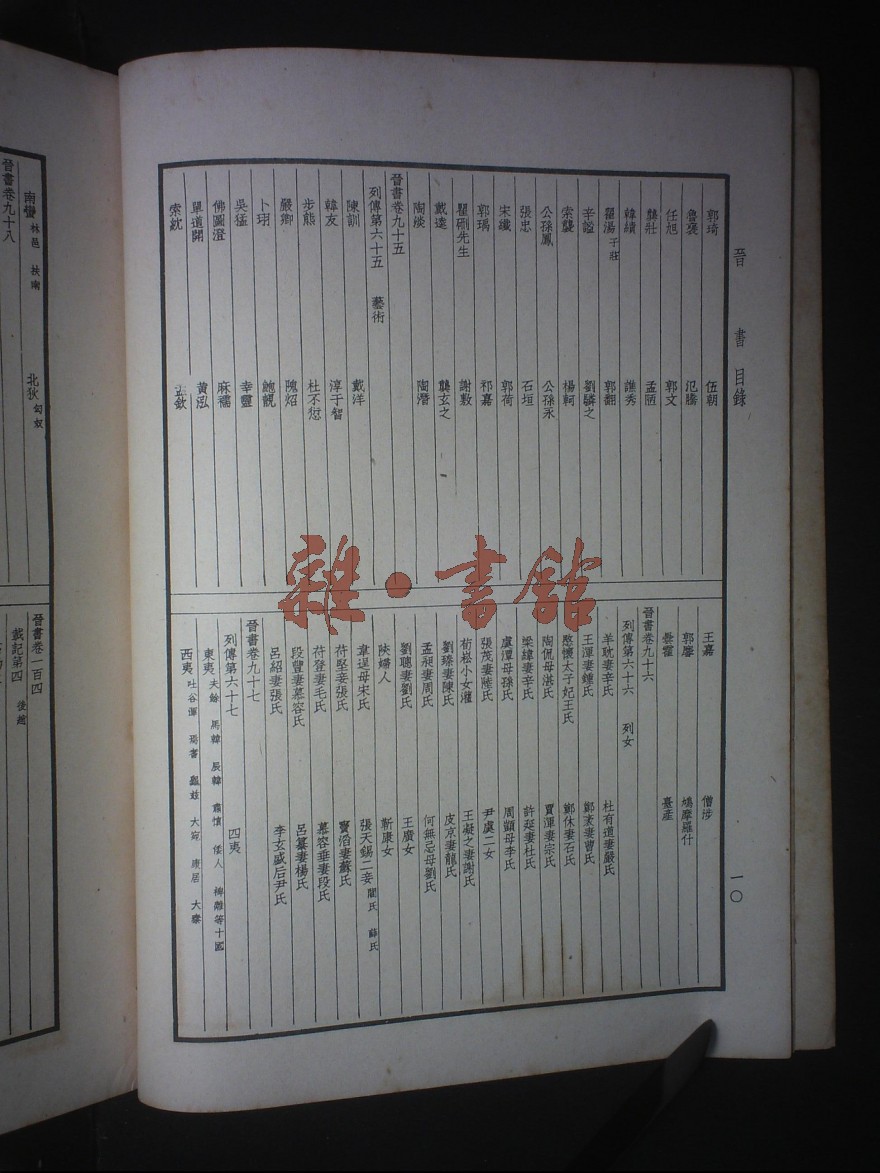 晉書目錄
一〇
郭琦 伍朝
魯褒 氾騰
任旭 郭文
龔壯 孟陋
韓績 譙秀
翟湯 子莊 郭翻
辛謐 劉驎之
索襲 楊軻
公孫鳳 公孫永
張忠 石垣
宋纖 郭荷
郭瑀 祁嘉
瞿硎先生 謝敷
戴逵 龔玄之
陶淡 陶潛
晉書卷九十五
列傳第六十五 藝術
陳訓 戴洋
韓友 淳于智
步熊 杜不愆
嚴卿 隗炤
卜珝 鮑靚
吳猛 幸靈
佛圖澄 麻襦
單道開 黃泓
索紞 孟欽
王嘉 僧涉
郭黁 鳩摩羅什
曇霍 臺產
晉書卷九十六
列傳第六十六 列女
羊耽妻辛氏 杜有道妻嚴氏
王渾妻鍾氏 鄭袤妻曹氏
愍懷太子妃王氏 鄭休妻石氏
陶侃母湛氏 賈渾妻宗氏
梁緯妻辛氏 許延妻杜氏
虞潭母孫氏 周顗母李氏
張茂妻陸氏 尹虞二女
荀崧小女灌 王凝之妻謝氏
劉臻妻陳氏 皮京妻龍氏
孟昶妻周氏 何無忌母劉氏
劉聰妻劉氏 王廣女
陝婦人 靳康女
韋逞母宋氏 張天錫二妾 閻氏 薛氏
苻堅妾張氏 竇滔妻蘇氏
苻登妻毛氏 慕容垂妻段氏
段豐妻慕容氏 呂纂妻楊氏
呂紹妻張氏 李玄盛后尹氏
晉書卷九十七
列傳第六十七 四夷
東夷 夫餘 馬韓 辰韓 肅慎 倭人 裨離等十國
西夷 吐谷渾 焉耆 龜茲 大宛 康居 大秦
南蠻 林邑 扶南 北狄 匈奴
晉書卷九十八
晉書卷一百四
載記第四 後趙
雜·書館